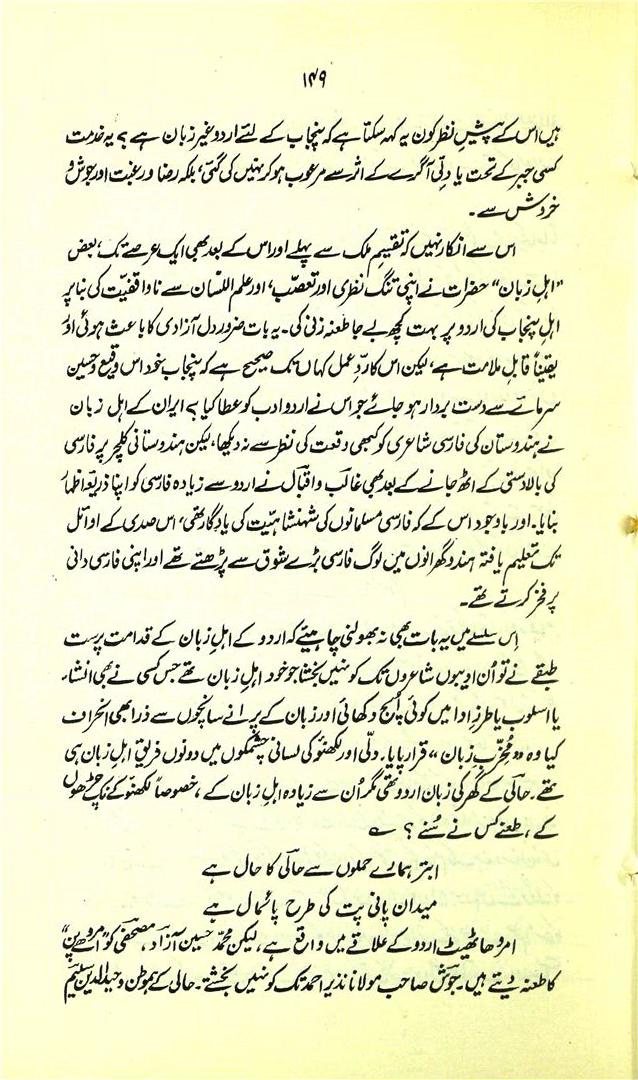 ۱۴۹
ہیں اس کے پیشِ نظر کون یہ کہہ سکتا ہے کہ پنجاب کے لئے اردو غیر زبان ہے ؟ یہ خدمت
کسی جبر کے تحت یا دِلّی آگرے کے اثر سے مرعوب ہو کر نہیں کی گئی، بلکہ رضا و رغبت اور جوش و
خروش سے ۔
اس سے انکار نہیں کہ تقسیمِ ملک سے پہلے اور اس کے بعد بھی ایک عرصے تک، بعض
”اہلِ زبان“ حضرات نے اپنی تنگ نظری اور تعصّب، اور علم اللّسان سے ناواقفیّت کی بنا پر
اہلِ پنجاب کی اردو پر بہت کچھ بے جا طعنہ زنی کی۔ یہ بات ضرور دل آزاری کا باعث ہوئی اور
یقیناً قابلِ ملامت ہے، لیکن اس کا ردِّ عمل کہاں تک صحیح ہے کہ پنجاب خود اس وقیع و حسین
سرمائے سے دست بردار ہو جائے جو اس نے اردو ادب کو عطا کیا ؟ ایران کے اہلِ زبان
نے ہندوستان کی فارسی شاعری کو کبھی وقعت کی نظر سے نہ دیکھا، لیکن ہندوستانی کلچر پر فارسی
کی بالادستی کے اٹھ جانے کے بعد بھی غالب و اقبال نے اردو سے زیادہ فارسی کو اپنا ذریعۂ اظہار
بنایا۔ اور باوجود اس کے کہ فارسی مسلمانوں کی شہنشاہیّت کی یادگار تھی، اس صدی کے اوائل
تک تعلیم یافتہ ہندو گھرانوں میں لوگ فارسی بڑے شوق سے پڑھتے تھے اور اپنی فارسی دانی
پر فخر کرتے تھے۔
اِس سلسلے میں یہ بات بھی نہ بھولنی چاہیئے کہ اردو کے اہلِ زبان کے قدامت پرست
طبقے نے تو اُن ادیبوں شاعروں تک کو نہیں بخشا جو خود اہلِ زبان تھے جس کسی نے بھی انشاء
یا اسلوب یا طرزِ ادا میں کوئی اُپج دکھائی اور زبان کے پرانے سانچوں سے ذرا بھی انحراف
کیا وہ ”مخرّبِ زبان“ قرار پایا۔ دلّی اور لکھنؤ کی لسانی چشمکوں میں دونوں فریق اہلِ زبان ہی
تھے۔ حالی کے گھر کی زبان اردو تھی مگر اُن سے زیادہ اہلِ زبان کے ، خصوصاً لکھنؤ کے نک چڑھوں
کے ، طعنے کس نے سُنے ؟ ؎
ابتر ہمارے حملوں سے حالی کا حال ہے
میدان پانی پت کی طرح پائمال ہے
امروہا ٹھیٹ اردو کے علاقے میں واقع ہے، لیکن محمّد حسین آزاد، مصحفی کو ”امروہے پن“
کا طعنہ دیتے ہیں۔ جوش صاحب مولانا نذیر احمد تک کو نہیں بخشتے۔ حالی کے ہموطن وحید الدین سلیم